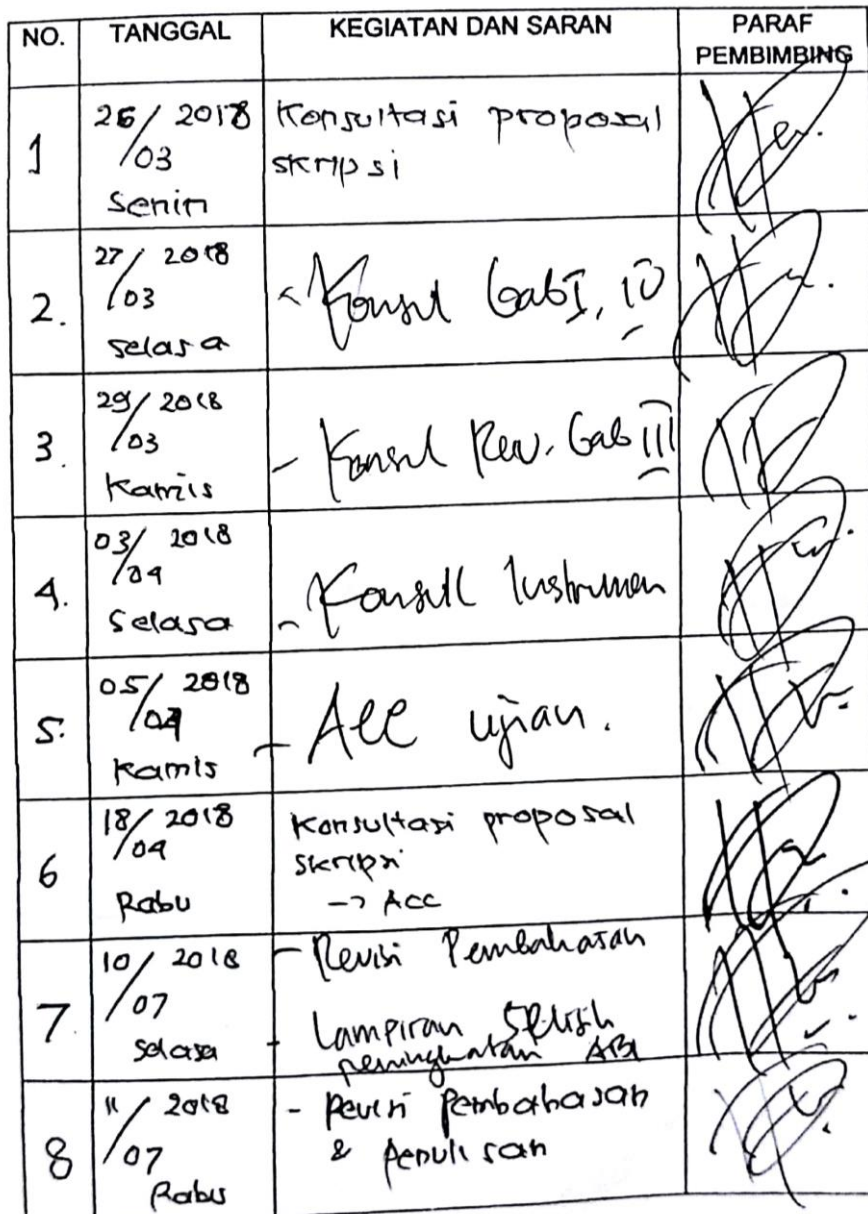 NO. TANGGAL KEGIATAN DAN SARAN PARAF PEMBIMBING
1 26/03 2018 Senin Konsultasi proposal
skripsi
2. 27/03 2018 Selasa - Konsul bab I, IV
3. 29/03 2018 Kamis - Konsul Rev. bab III
4. 03/04 2018 Selasa - Konsull Instrumen
5. 05/04 2018 Kamis - Acc ujian.
6 18/04 2018 Rabu Konsultasi proposal
skripsi
-> Acc
7 10/07 2018 Selasa - Revisi Pembahasan
- Lampiran Selisih
peningkatan ABI
8 11/07 2018 Rabu - Revisi Pembahasan
& Penulisan